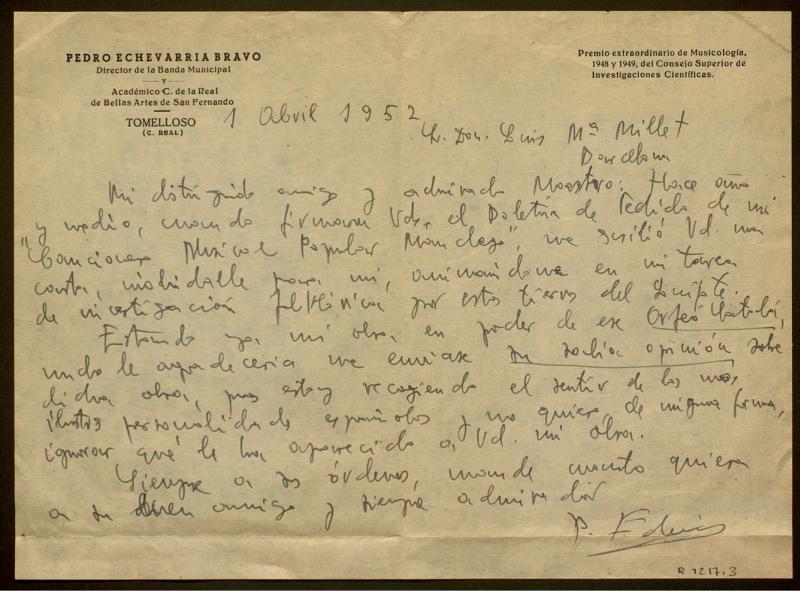 PEDRO ECHEVARRIA BRAVO
Director de la Banda Municipal
Y
Académico C. de la Real
de Bellas Artes de San Fernando
TOMELLOSO
(C. REAL)
Premio extraordinario de Musicología,
1948 y 1949, del Consejo Superior de
Investigaciones Científicas.
1 Abril 1952
Sr. Don. Luis Mª Millet
Barcelona
Mi distinguido amigo y admirado Maestro: Hace año
y medio, cuando firmaron Vds. el Boletín de Pedido de mi
"Cancionero Musical Popular Manchego", me escribió Vd. una
carta, inolvidable para mi, animándome en mi tarea
de investigación folklórica por estas tierras del Quijote.
Estando ya mi obra en poder de ese Orfeó Català,
mucho le agradecería me enviase su sabia opinión sobre
dicha obra, pues estoy recogiendo el sentir de las mas
ilustres personalidades españolas y no quiero, de ninguna forma,
ignorar qué le ha aparecido a Vd. mi obra.
Siempre a sus órdenes, mande cuanto quiera
a su buen amigo y siempre admirador
P. Echevarría
R 1217.3